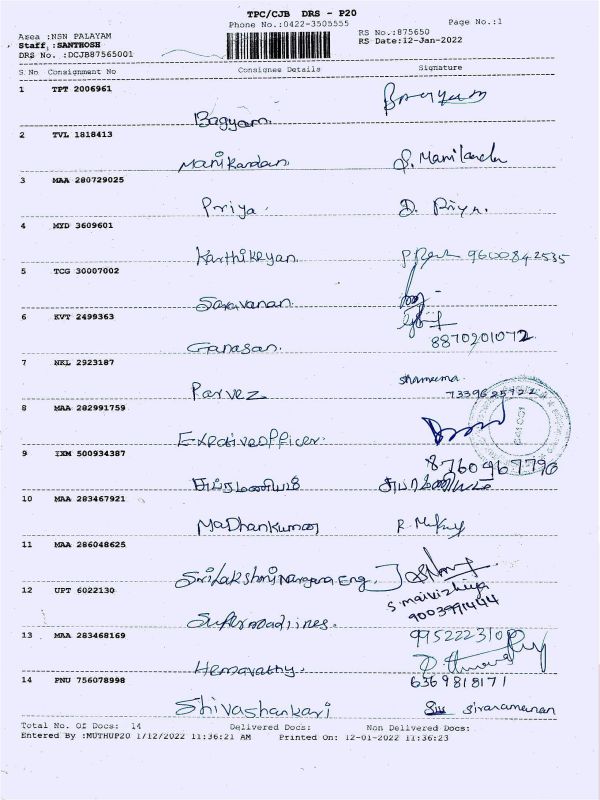 TPC/CJB DRS - P20
Phone No.:0422-3505555
Page No.:1
Area :NSN PALAYAM
RS No.:875650
Staff :SANTHOSH
RS Date:12-Jan-2022
DRS No. :DCJB87565001
S.No Consignment No Consignee Details Signature
1 TPT 2006961
Bagyam
2 TVL 1818413
Manikandan S. Manikandan
3 MAA 280729025
Priya. D. Priya.
4 MYD 3609601
Karthikeyan 9600842535
5 TCG 30007002
Saravanan
6 KVT 2499363
8870201072
Ganasan
7 NKL 2923187
Shameema
Parvez
8 MAA 282991759
Exeative officer
9 IXM 500934387
8760967790
10 MAA 283467921
Madhankumar
11 MAA 286048625
Srilakshmi Nangana Eng.
S. maivizhiya
9003991444
12 UPT 6022130
Super roadlines.
13 MAA 283468169
Hemavathy.
14 PNU 756078998
6369818171
Shivashankari sivaramanan
Total No. Of Docs: 14 Delivered Docs: Non Delivered Docs:
Entered By :MUTHUP20 1/12/2022 11:36:21 AM Printed On: 12-01-2022 11:36:23